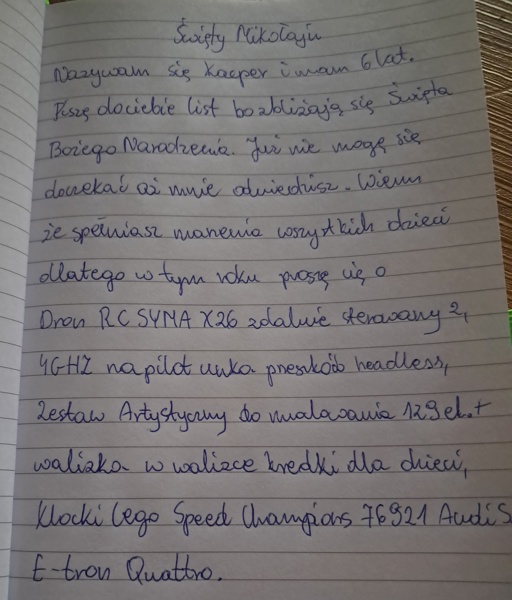 Święty Mikołaju
Nazywam się Kacper i mam 6 lat.
Piszę do ciebie list bo zbliżają się Święta
Bożego Narodzenia. Już nie mogę się
doczekać aż mnie odwiedzisz. Wiem
że spełniasz marzenia wszystkich dzieci
dlatego w tym roku proszę cię o
Dron RC SYMA X26 zdalnie sterowany 2,
4GHZ na pilot unika przeszkód headless,
Zestaw Artystyczny do malowania 129el.+
walizka w walizce kredki dla dzieci,
Klocki Lego Speed Champions 76921 Audi S
E-tron Quattro.